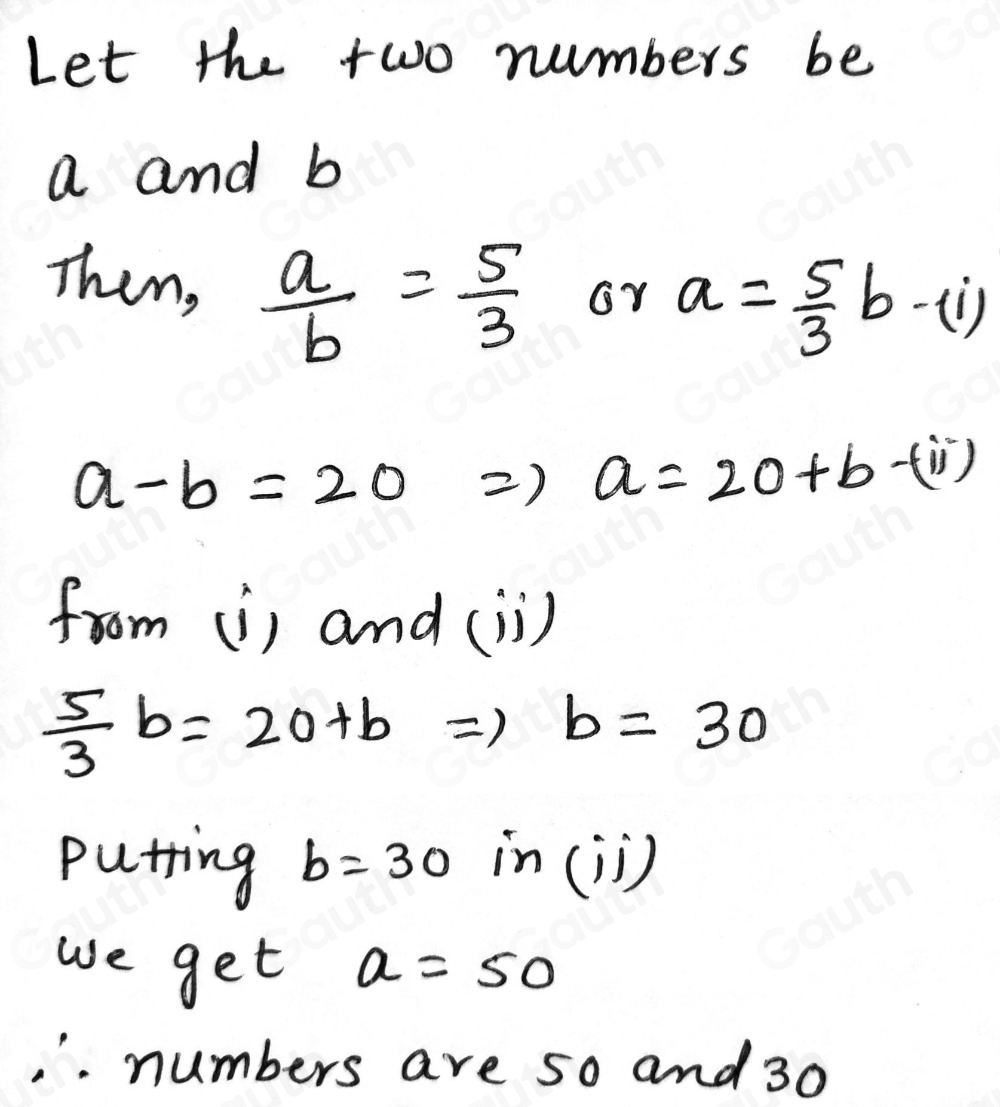 Let the two numbers be
a and b
Then, a/b = 5/3 or a = 5/3 b -(i)
a - b = 20 => a = 20 + b -(ii)
from (i) and (ii)
5/3 b = 20 + b => b = 30
Putting b = 30 in (ii)
we get a = 50
∴ numbers are 50 and 30